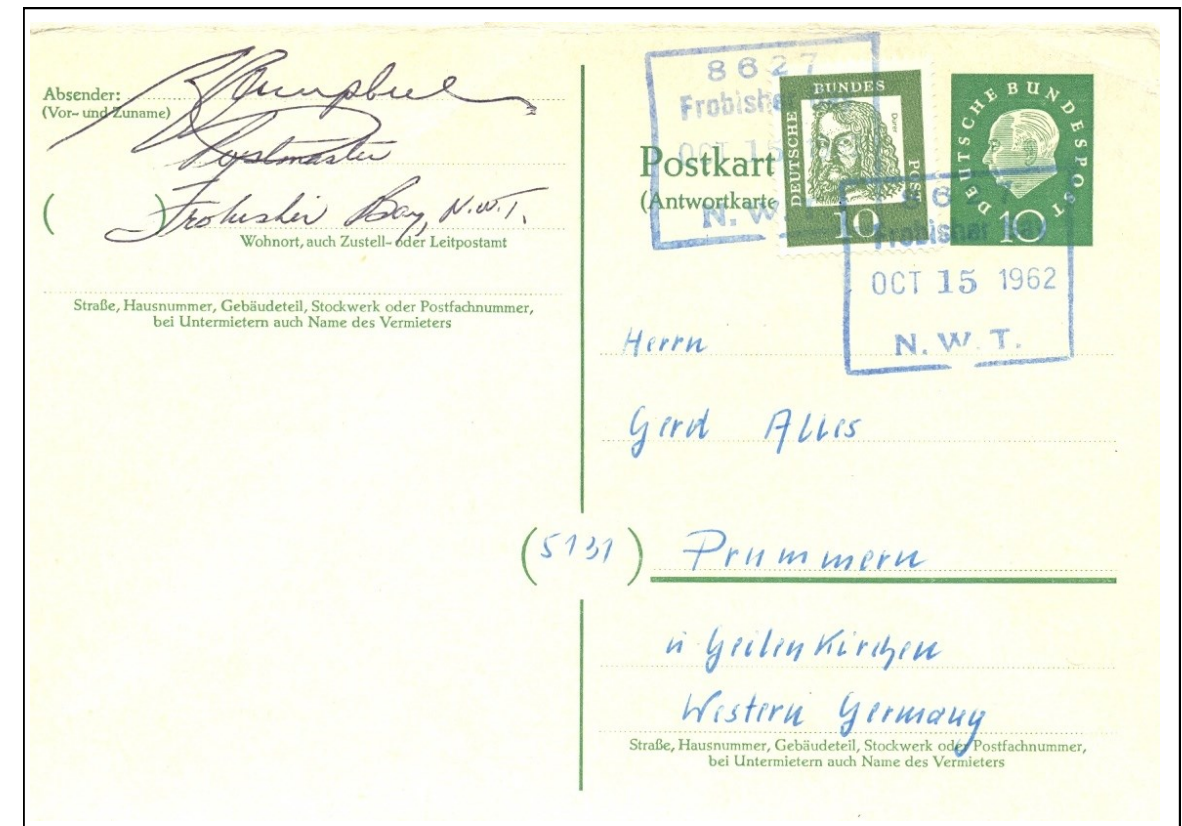 Absender:
(Vor- und Zuname)
Campbell
Postmaster
( ) Frobisher Bay, N.W.T.
Wohnort, auch Zustell- oder Leitpostamt
Straße, Hausnummer, Gebäudeteil, Stockwerk oder Postfachnummer,
bei Untermietern auch Name des Vermieters
8627
Frobisher
OCT 15
N. W.
Postkart
(Antwortkarte
DEUTSCHE BUNDESPOST
Dürer
10
DEUTSCHE BUNDESPOST
10
8627
Frobisher Bay
OCT 15 1962
N. W. T.
Herrn
Gerd Alles
(5131) Prummern
ü Geilenkirchen
Western Germany
Straße, Hausnummer, Gebäudeteil, Stockwerk oder Postfachnummer,
bei Untermietern auch Name des Vermieters